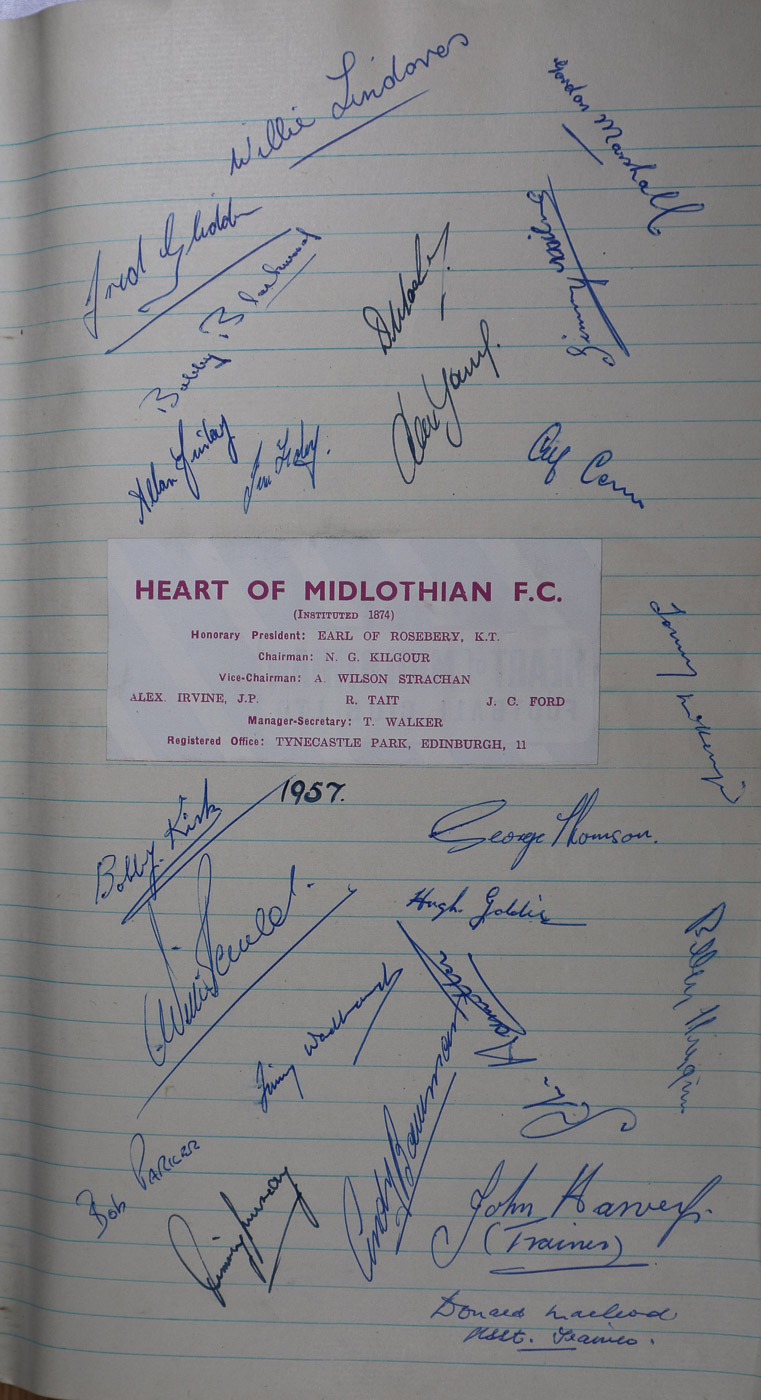 Willie Lindores
Gordon Marshall
Fred Glidden
Bobby Blackwood
D Mackay
Jimmy Milne
Alex Young.
Allan Finlay
Alf Conn
HEART OF MIDLOTHIAN F.C.
(INSTITUTED 1874)
Honorary President: EARL OF ROSEBERY, K.T.
Chairman: N. G. KILGOUR
Vice-Chairman: A. WILSON STRACHAN
ALEX. IRVINE, J.P. R. TAIT J. C. FORD
Manager-Secretary: T. WALKER
Registered Office: TYNECASTLE PARK, EDINBURGH, 11
Tommy McKenzie
1957.
Bobby Kirk
George Thomson.
Hugh Goldie
Billy Higgins
Jimmy Wardhaugh
Andy Bowman
Bob PARKER
Jimmy Murray
John Harvey.
(Trainer)
Donald Macleod
Asst. Trainer.